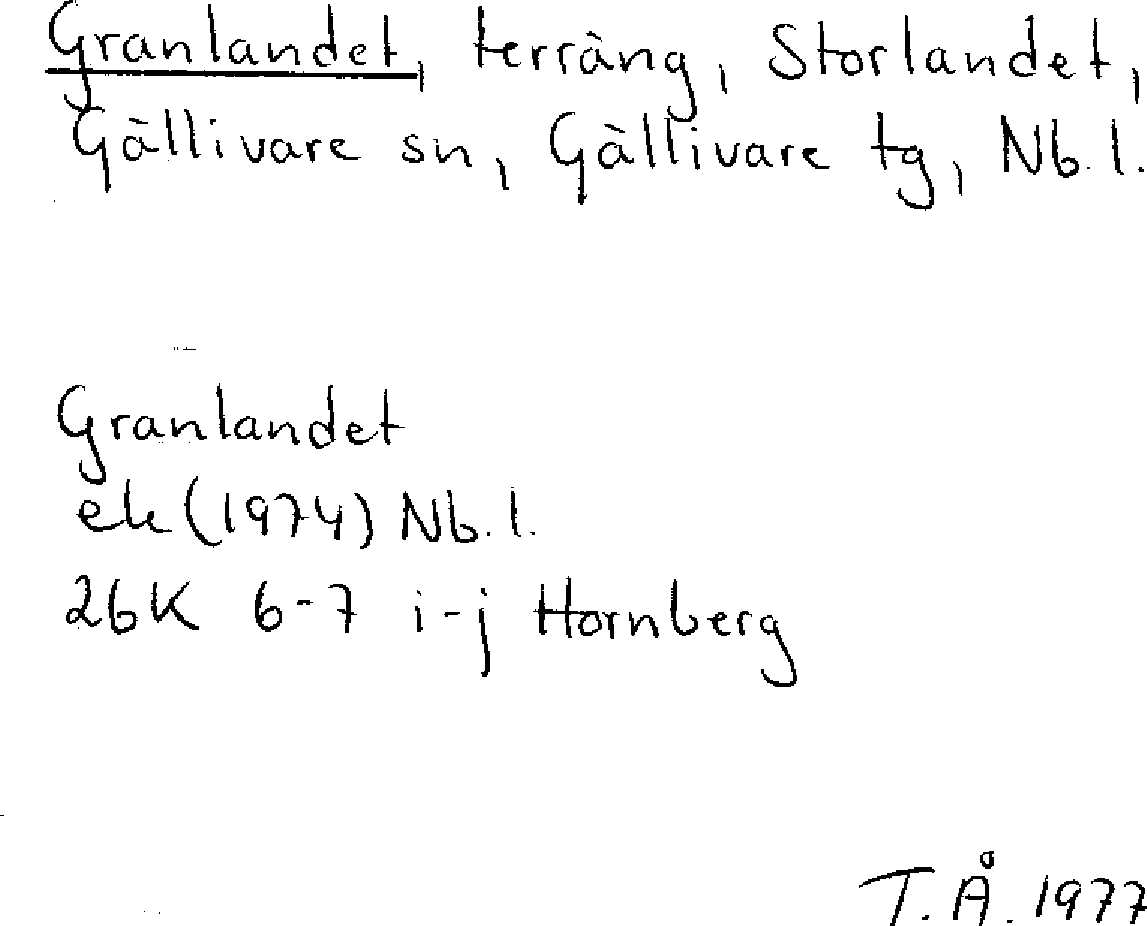 Granlandet, terräng, Storlandet,
Gällivare sn, Gällivare tg, Nb. l.
Granlandet
ek (1974) Nb. l.
26K 6-7 i-j Hornberg
T. Å. 1977